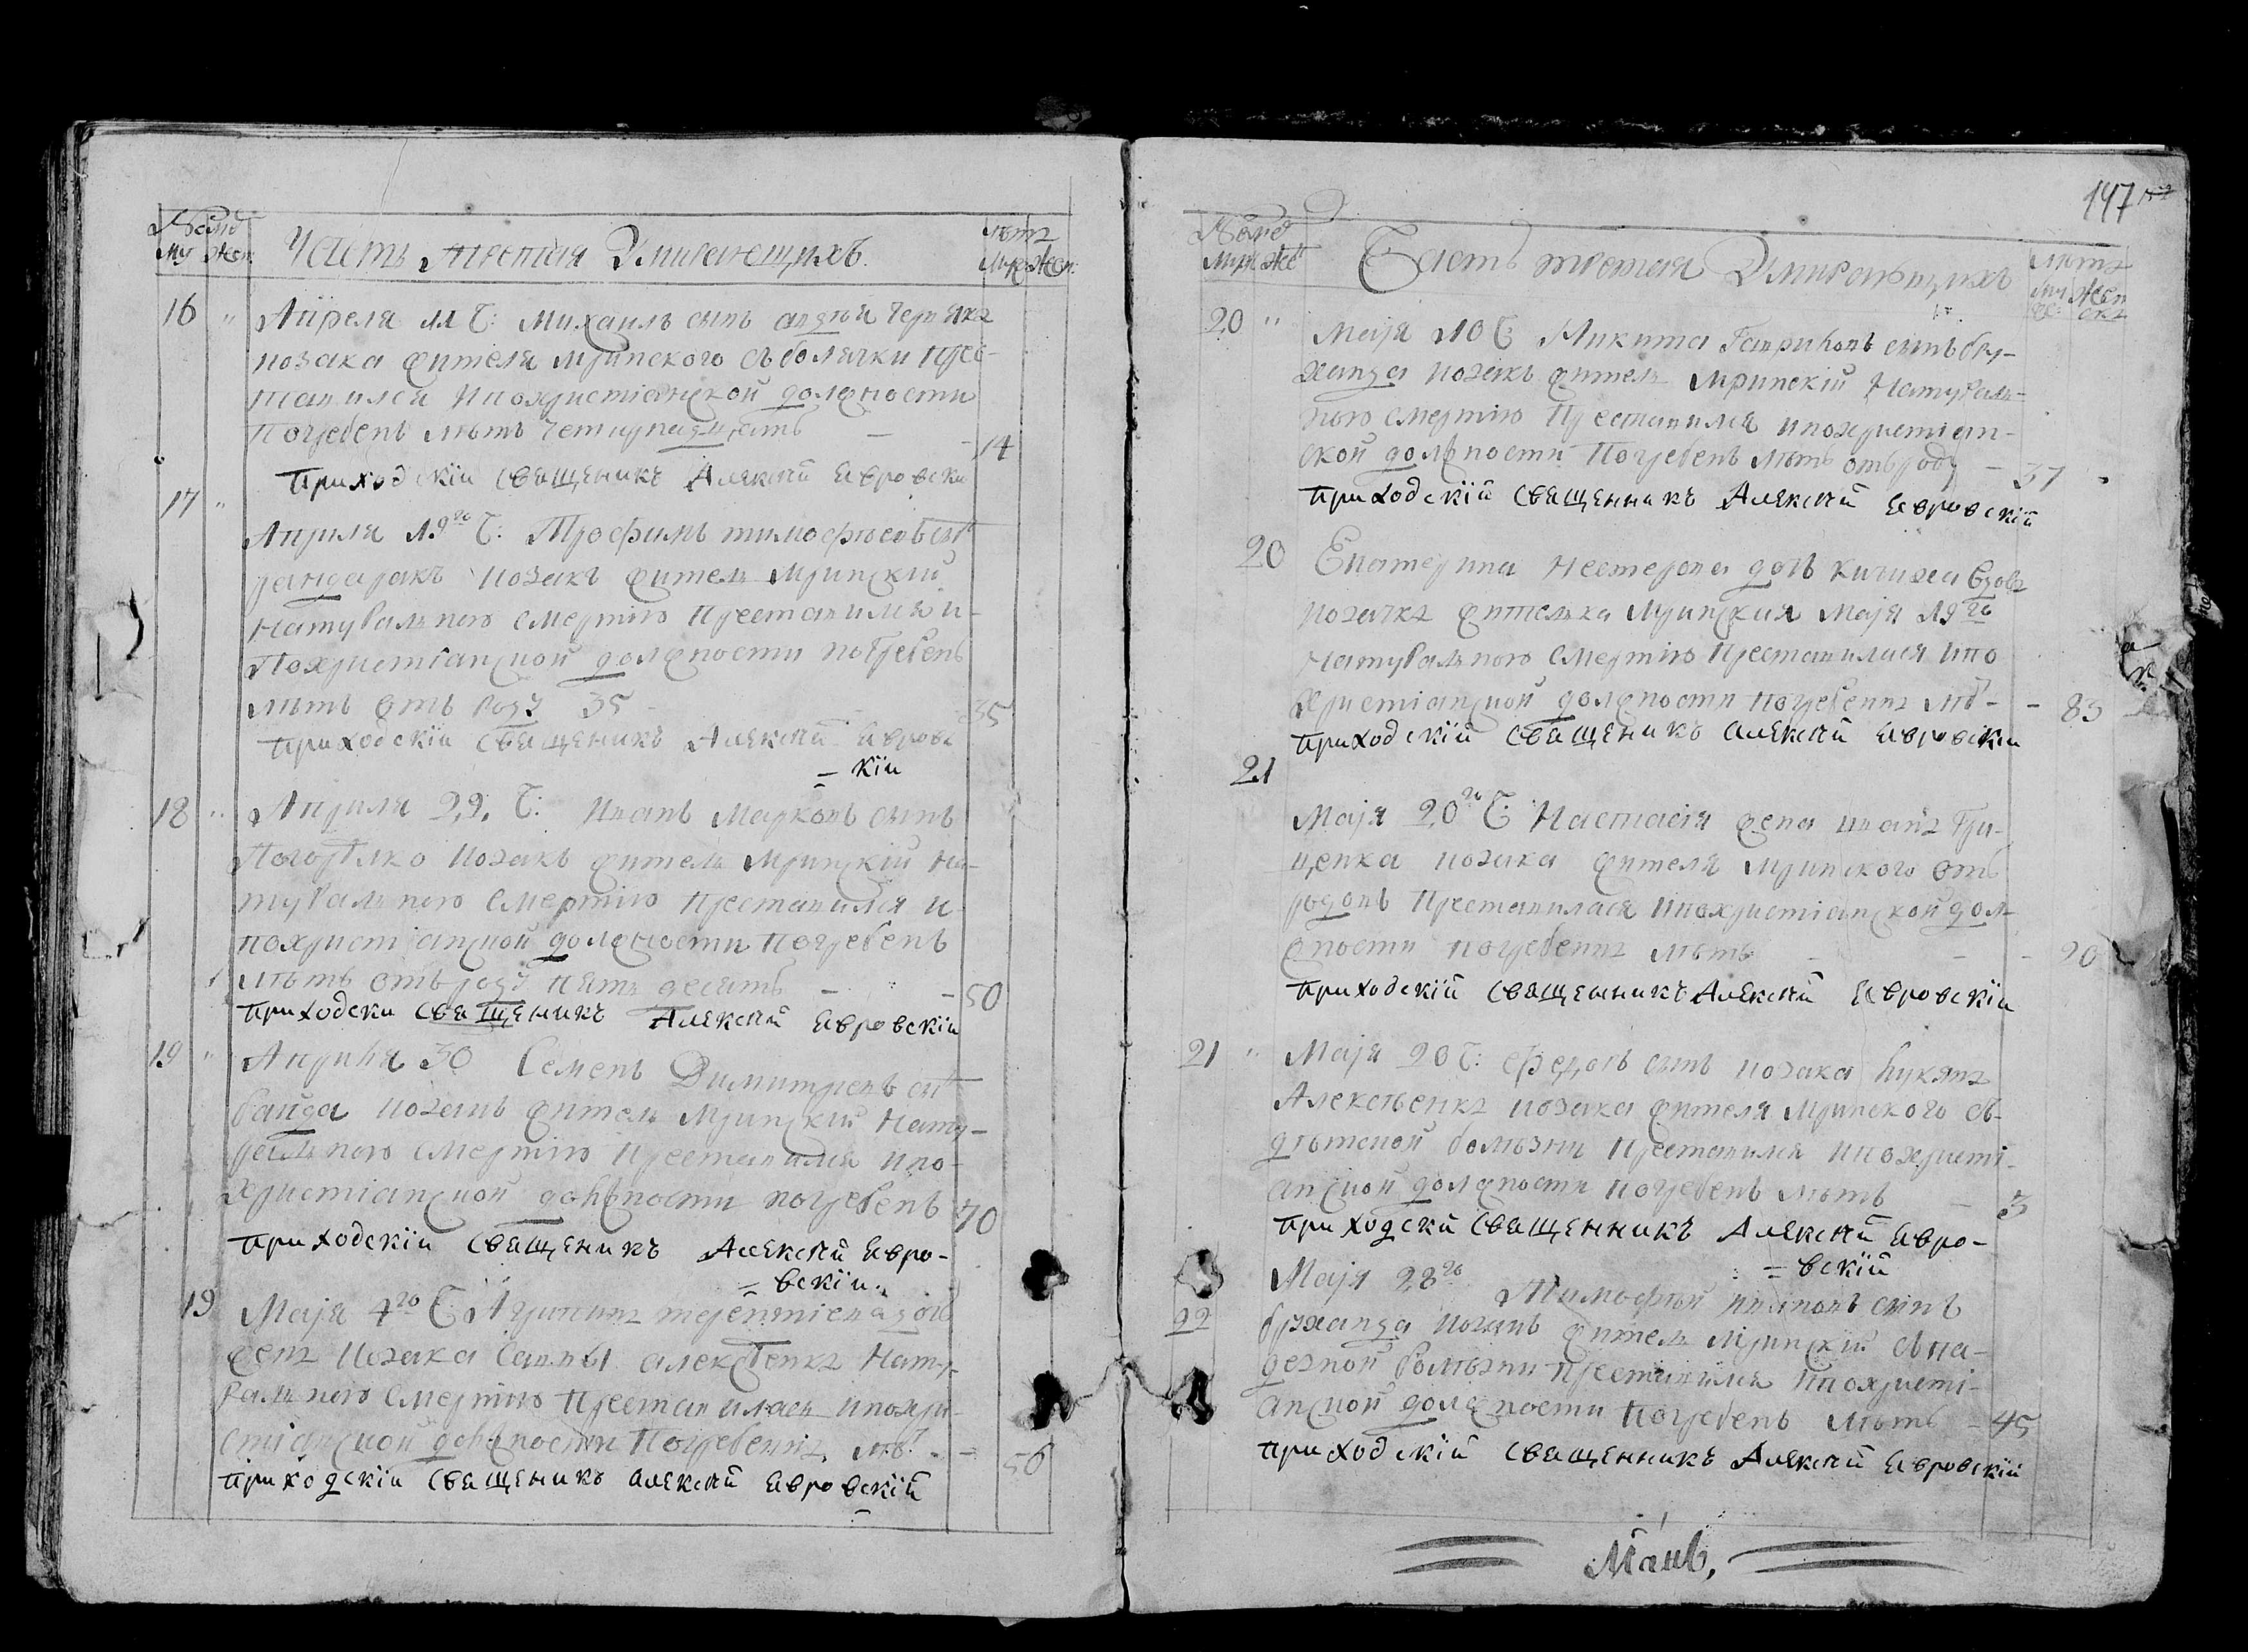 Часть третая Умирающихъ
Му Жен Муж Жен
16 Апреля 11 Ч: Михаилъ сынъ андрѣя черняка
козака жителя мринского съ болячки прес-
тавился и похристіанской должности
погребенъ лѣтъ четирнадцять 14
приходскїи священикъ Алексѣй Евровски
17
Априля 19го Ч: Трофимъ тимофѣевъ сынъ
козакъ житель Мринский
натуральною смертію преставился и
похристіанской должности погребенъ
лѣтъ отъ роду 35 35
приходскїи священикъ Алексѣй Евровс
кїи
18 Априля 29. Ч: Иванъ Марковъ сынъ
Погорѣлко козакъ житель Мринскій на-
туральною смертію преставился и
похристіанской должности погребенъ
лѣтъ отъ роду пять десятъ 50
приходски священикъ Алексѣй Евровскїи
19 Априля 30 Семенъ Димитриевъ сынъ
байда козакъ житель Мринскій нату-
ральною смертію преставился и по-
христіанской должности погребенъ 70
приходскїи священикъ Алексѣй Евро-
вскїи
19 Маія 4го Ч: Агрипина терентіева дочь
жена козака Саввы алексѣенка нату-
ральною смертію преставилась и похри-
стіанской должности погребенна лѣ: 56
приходскїи священикъ алексѣй Евровскїй
147
Часть третая Умирающихъ
Муж Же Лѣта
Муж Жен
20 Маія 10 Ч Никита Гавриловъ сынъ бру-
ханда козакъ житель мринскій натураль-
ною смертію преставился и похристіан-
ской должности погребенъ лѣтъ отъ роду 37
приходскїй священникъ Алексѣй Евровскїй
20 Екатерина нестерова дочь вдова
козачка жителка мринская Маія 19го
натуральною смертію преставилася и по
христіанской должности погребенна лѣ 83
приходскїй священикъ алексѣй Евровскїи
21
Маія 20го Ч Настасія жена ивана Гри-
щенка козака жителя мринского отъ
родовъ преставилася и похристіанской дол-
жности погребенна лѣтъ 20
приходскїй священникъ Алексѣй Евровскїи
21 Маія 20 Ч: Федоръ сынъ козака лукяна
Алексѣенка козака жителя мринского съ
дѣтской болѣзни преставился и похристі-
анской должности погребенъ лѣтъ 3
приходскй священникъ Алексѣй Евро-
вскїй
Маія 28го Тимофѣй ивановъ сынъ
22 бруханда козакъ житель мринскій съ па-
дежной болѣзни преставился и похристі-
анской должности погребенъ лѣтъ 45
приходскїй священникъ Алексѣй Евровскїй